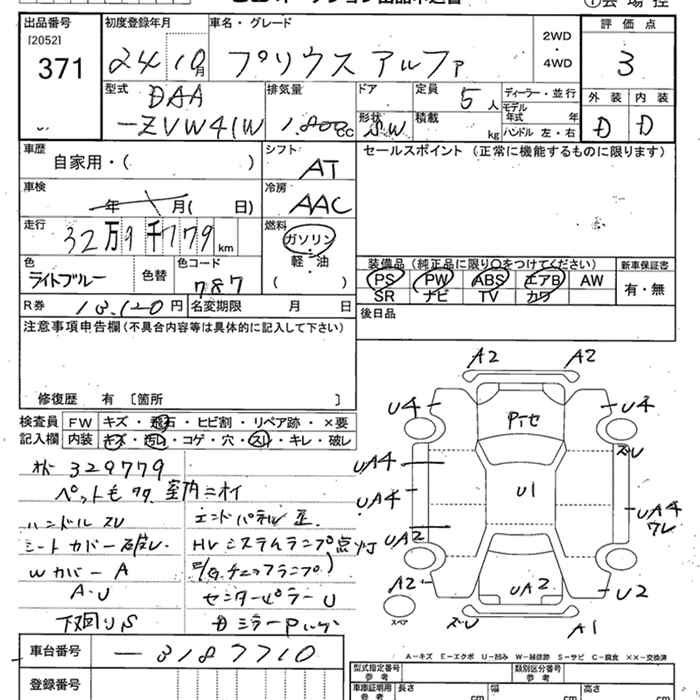 出品番号
[2052]
371
初度登録年月
24 10月
車名・グレード
プリウス アルファ
2WD
・
4WD
評価点
3
外装 内装
D D
型式
DAA
-ZVW41W
排気量
1,800cc
ドア
形状
SW
定員
5人
積載
kg
ディーラー・並行
モデル
年式 年
ハンドル 左・右
車歴
自家用・( )
シフト
AT
セールスポイント (正常に機能するものに限ります)
車検
年 月( 日)
冷房
AAC
走行
32万9千779km
燃料
ガソリン
軽・油
( )
色
ライトブルー
色替
色コード
787
装備品 (純正品に限り○をつけてください)
新車保証書
PS PW ABS エアB AW
SR ナビ TV カワ
有・無
R券
13,120円
名変期限 月 日
後日品
注意事項申告欄(不具合内容等は具体的に記入して下さい)
修復歴 有 [箇所 ]
検査員
記入欄
FW キズ・飛石・ヒビ割・リペア跡・×要
内装 キズ・汚レ・コゲ・穴・スレ・キレ・破レ
329779
ペット毛 室内ニオイ
ハンドル スレ
エンドパネル 歪
シートカバー破レ
HVシステムランプ点灯
Wカバー A
A・U
センターピラーU
下回りS
A2 A2
U4 U4
Pセ
UA4
U1
UA4
UA4
ワレ
UA2
A2
UA2
U2
スペア
A1
A-キズ E-エクボ U-凹み W-補修跡 S-サビ C-腐食 ××-交換済
車台番号
-3187710
登録番号
型式指定番号
参考
類別区分番号
参考
車庫証明用
参考
長さ cm
幅 cm
高さ cm